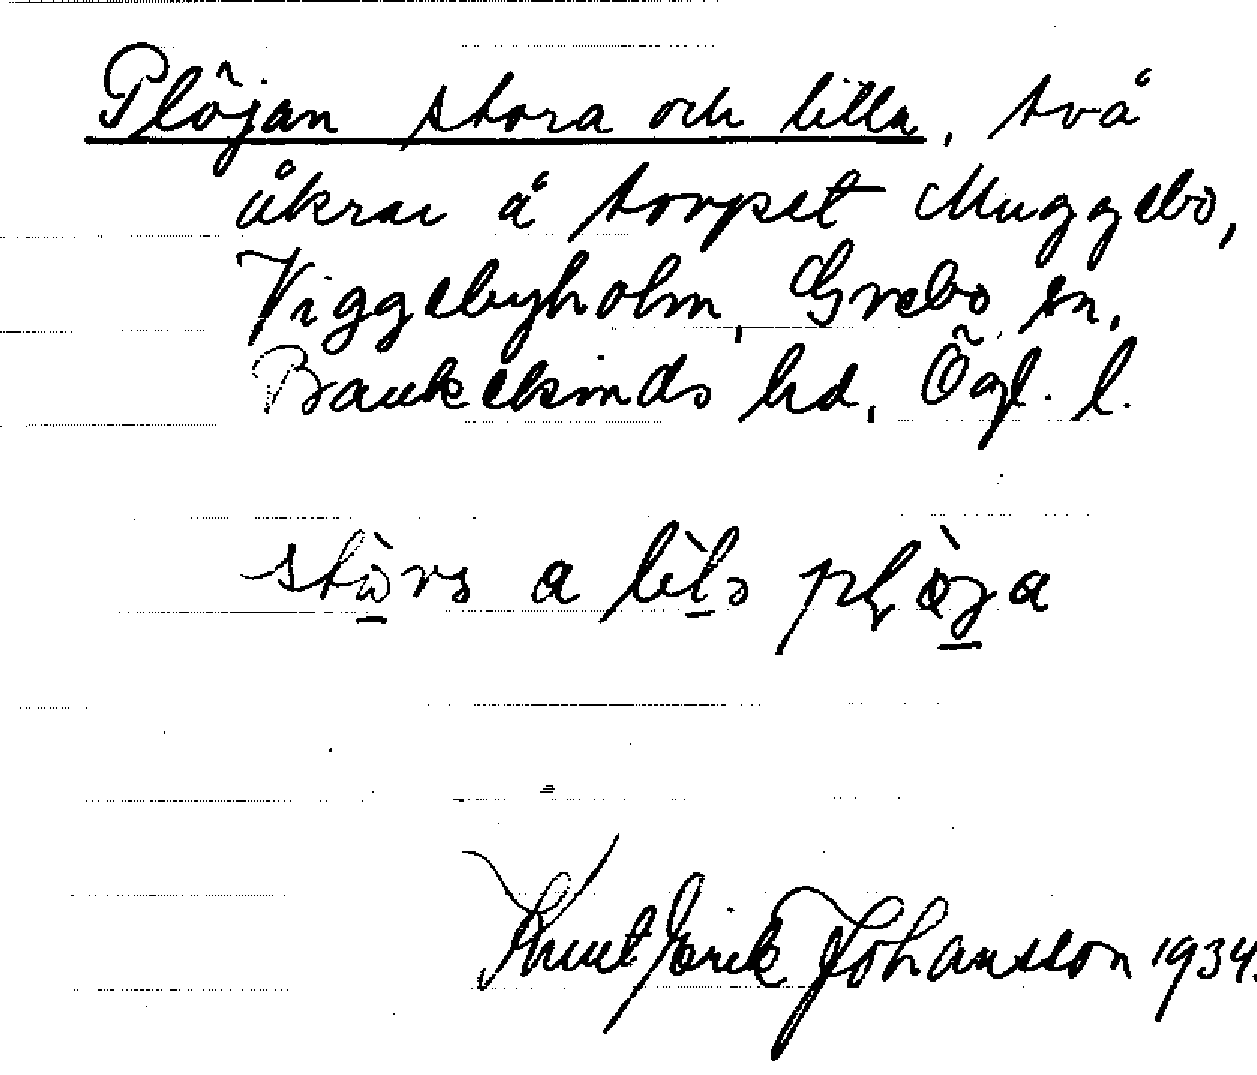 Plöjan stora och lilla, två
åkrar å torpet Muggebo,
Viggebyholm, Grebo sn,
Bankekinds hd, Ögl. l.
a
Knut Erik Johansson 1934.